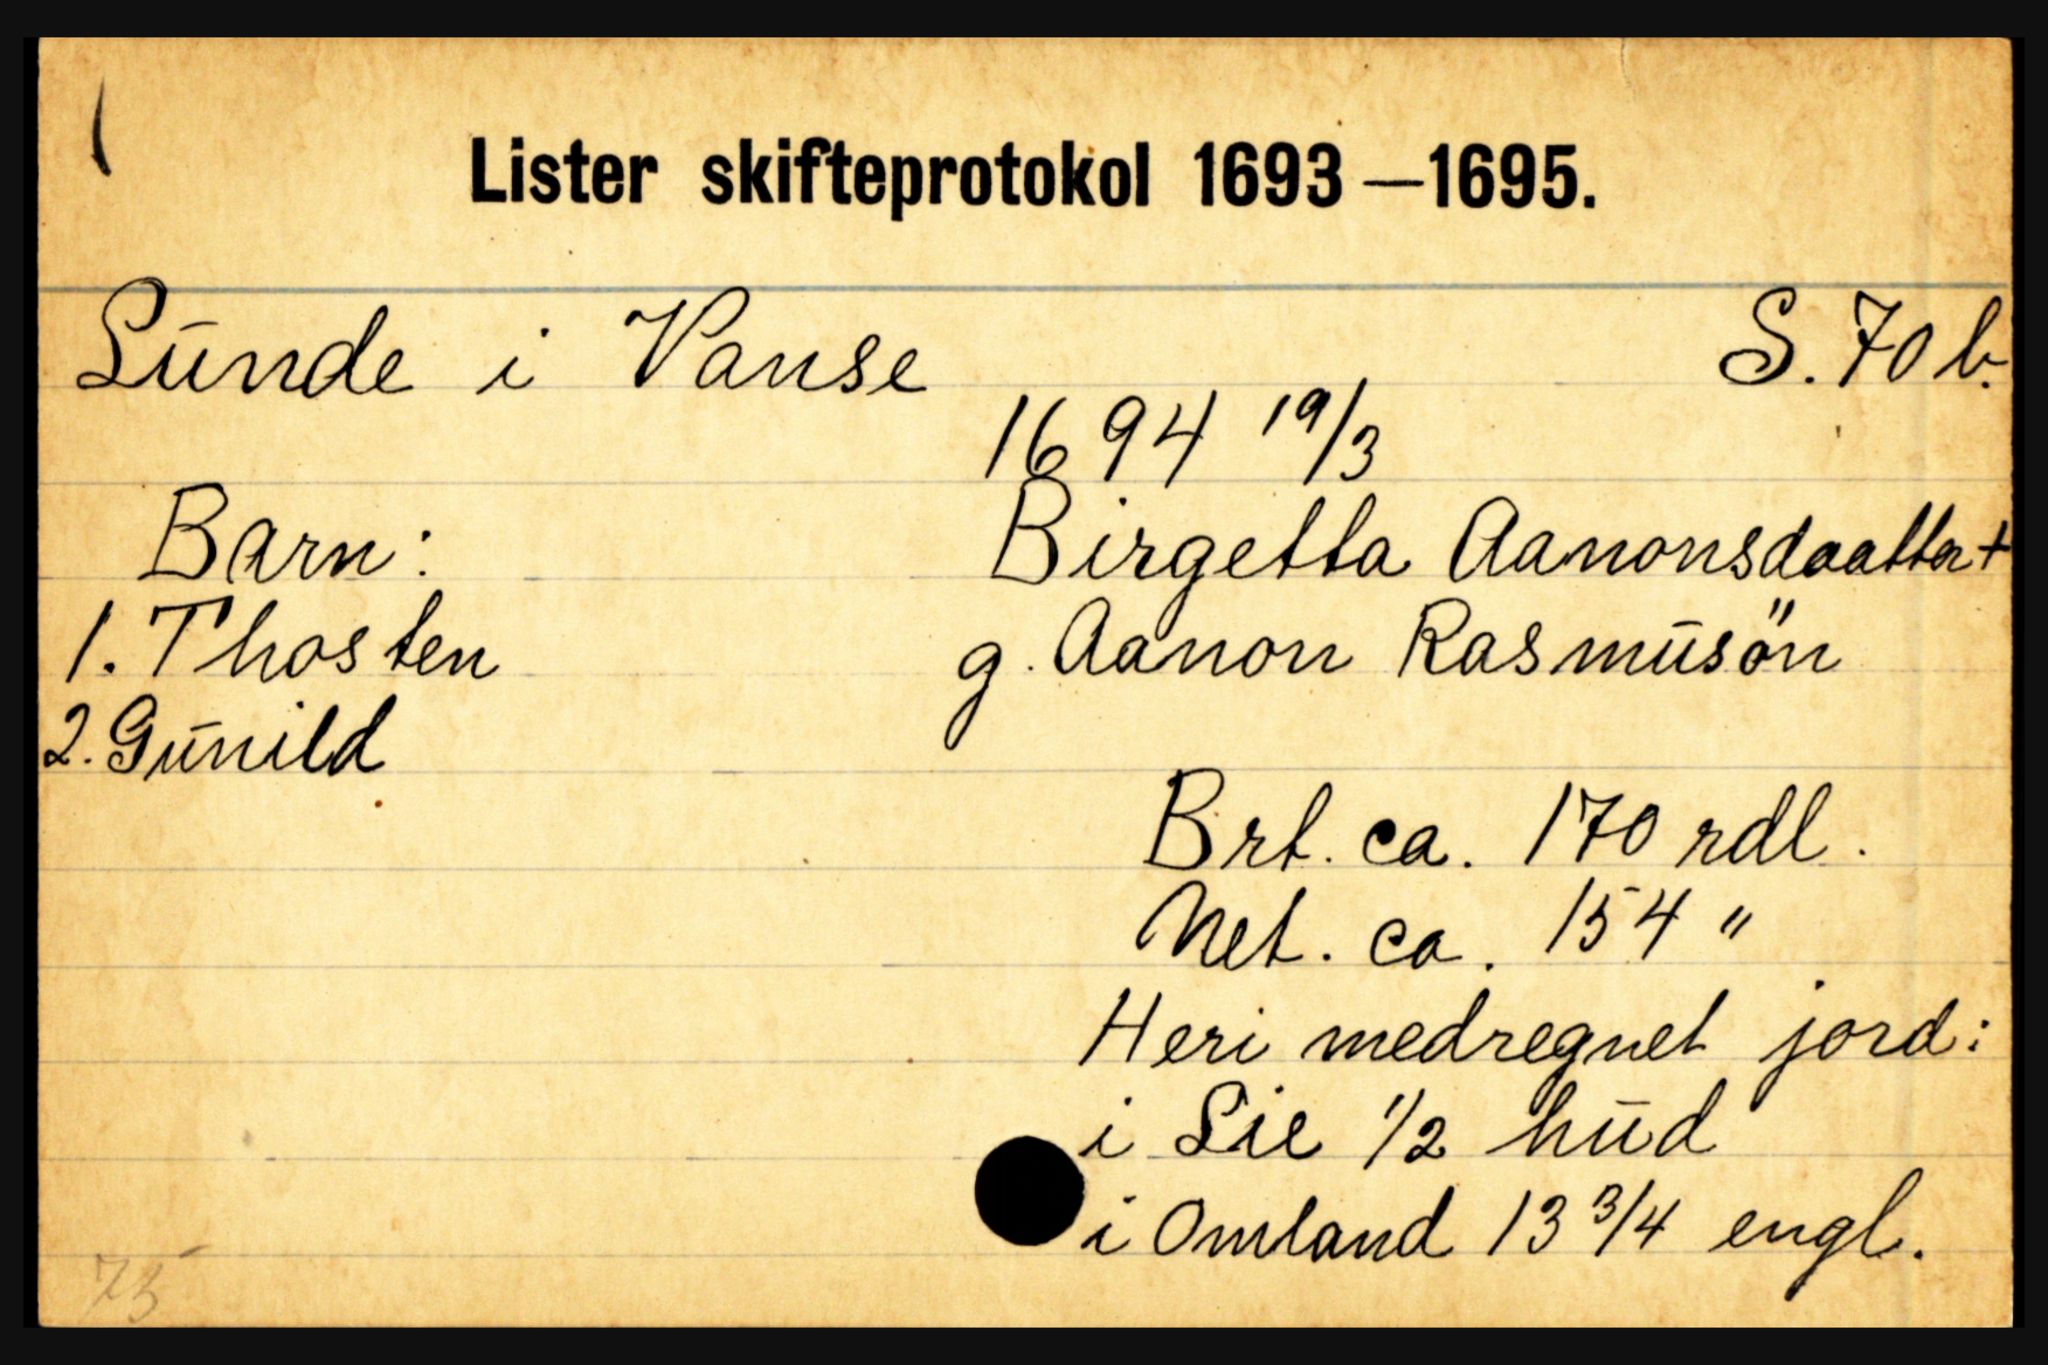 Lister skifteprotokol 1693—1695.
Sunde i Vanse S. 70 b.
1694 19/3
Barn: Birgetta Aanonsdaatter +
1. Thosten g. Aanon Rasmusön
2. Gunild
Brt. ca. 170 rdl.
Net. ca. 154 "
Heri medregnet jord:
i Lie 1/2 hud
i Omland 13 3/4 engl.
75